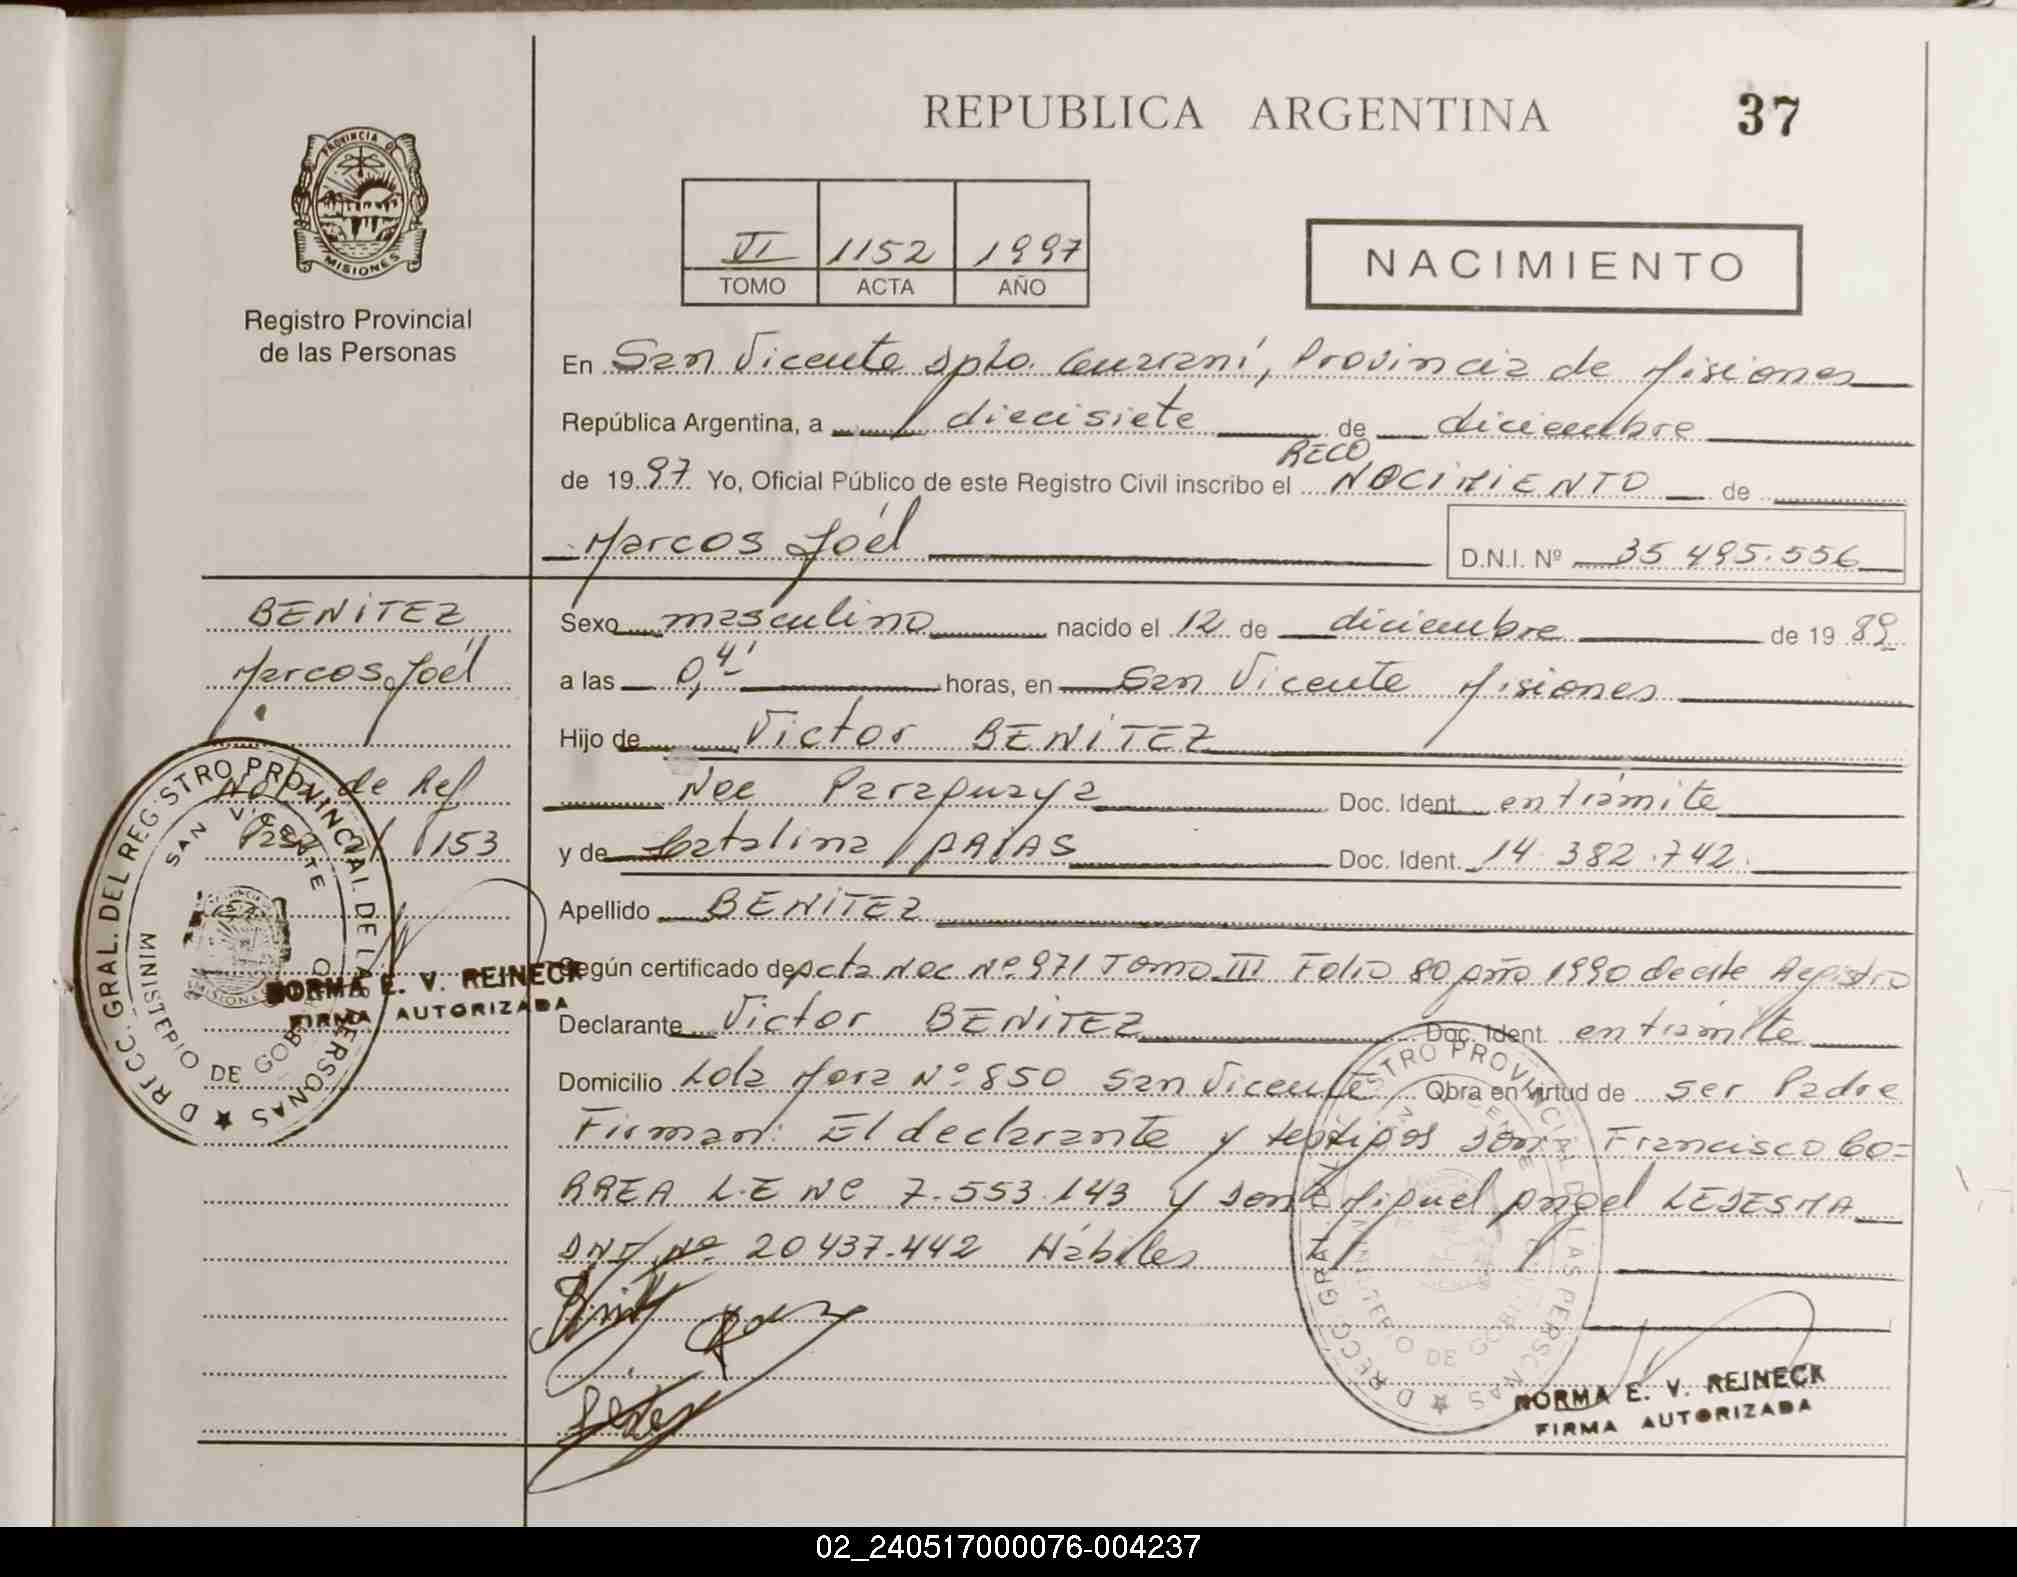 REPUBLICA ARGENTINA
37
PROVINCIA DE
MISIONES
Registro Provincial
de las Personas
VI 1152 1997
TOMO ACTA AÑO
NACIMIENTO
En San Vicente Dpto. Guaraní, Provincia de Misiones
República Argentina, a diecisiete de diciembre
de 1997 Yo, Oficial Público de este Registro Civil inscribo el RECONOCIMIENTO de
Marcos Joél
D.N.I. Nº 35 495.556
BENITEZ
Marcos Joél
Nota de Ref
153
Sexo masculino nacido el 12 de diciembre de 1989
a las 0,4' horas, en San Vicente Misiones
Hijo de Victor BENITEZ
Nac Paraguaya Doc. Ident. en trámite
y de Catalina Doc. Ident. 14.382.742.
Apellido BENITEZ
Según certificado de Acta Nac Nº 971 Tomo III Folio 80 Año 1990 de este Registro
Declarante Victor BENITEZ Doc. Ident. en trámite
Domicilio Lola Mora Nº 850 San Vicente Obra en virtud de ser Padre
Firman: El declarante y testigos don Francisco CO=
RREA L.E Nº 7.553.143 y don Miguel Angel LEDESMA
DNI Nº 20437.442 Hábiles
DIRECC. GRAL. DEL REGISTRO PROVINCIAL DE LAS PERSONAS
SAN VICENTE
MINISTERIO DE GOBIERNO
MISIONES
NORMA E. V. REINECK
FIRMA AUTORIZADA
DIRECC. GRAL. DEL REGISTRO PROVINCIAL DE LAS PERSONAS
MINISTERIO DE GOBIERNO
NORMA E. V. REINECK
FIRMA AUTORIZADA
02_240517000076-004237